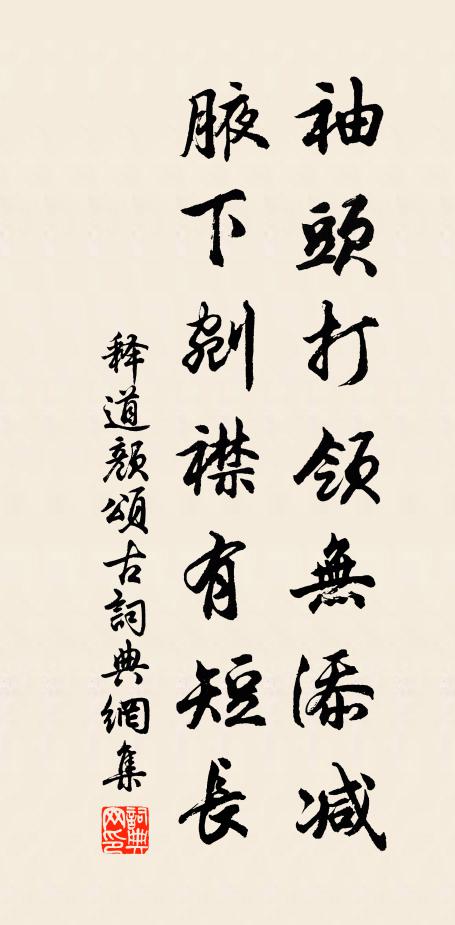 袖頭打領無添減
腋下剜襟有短長
释道颜頌古詞典網集
詞典网印